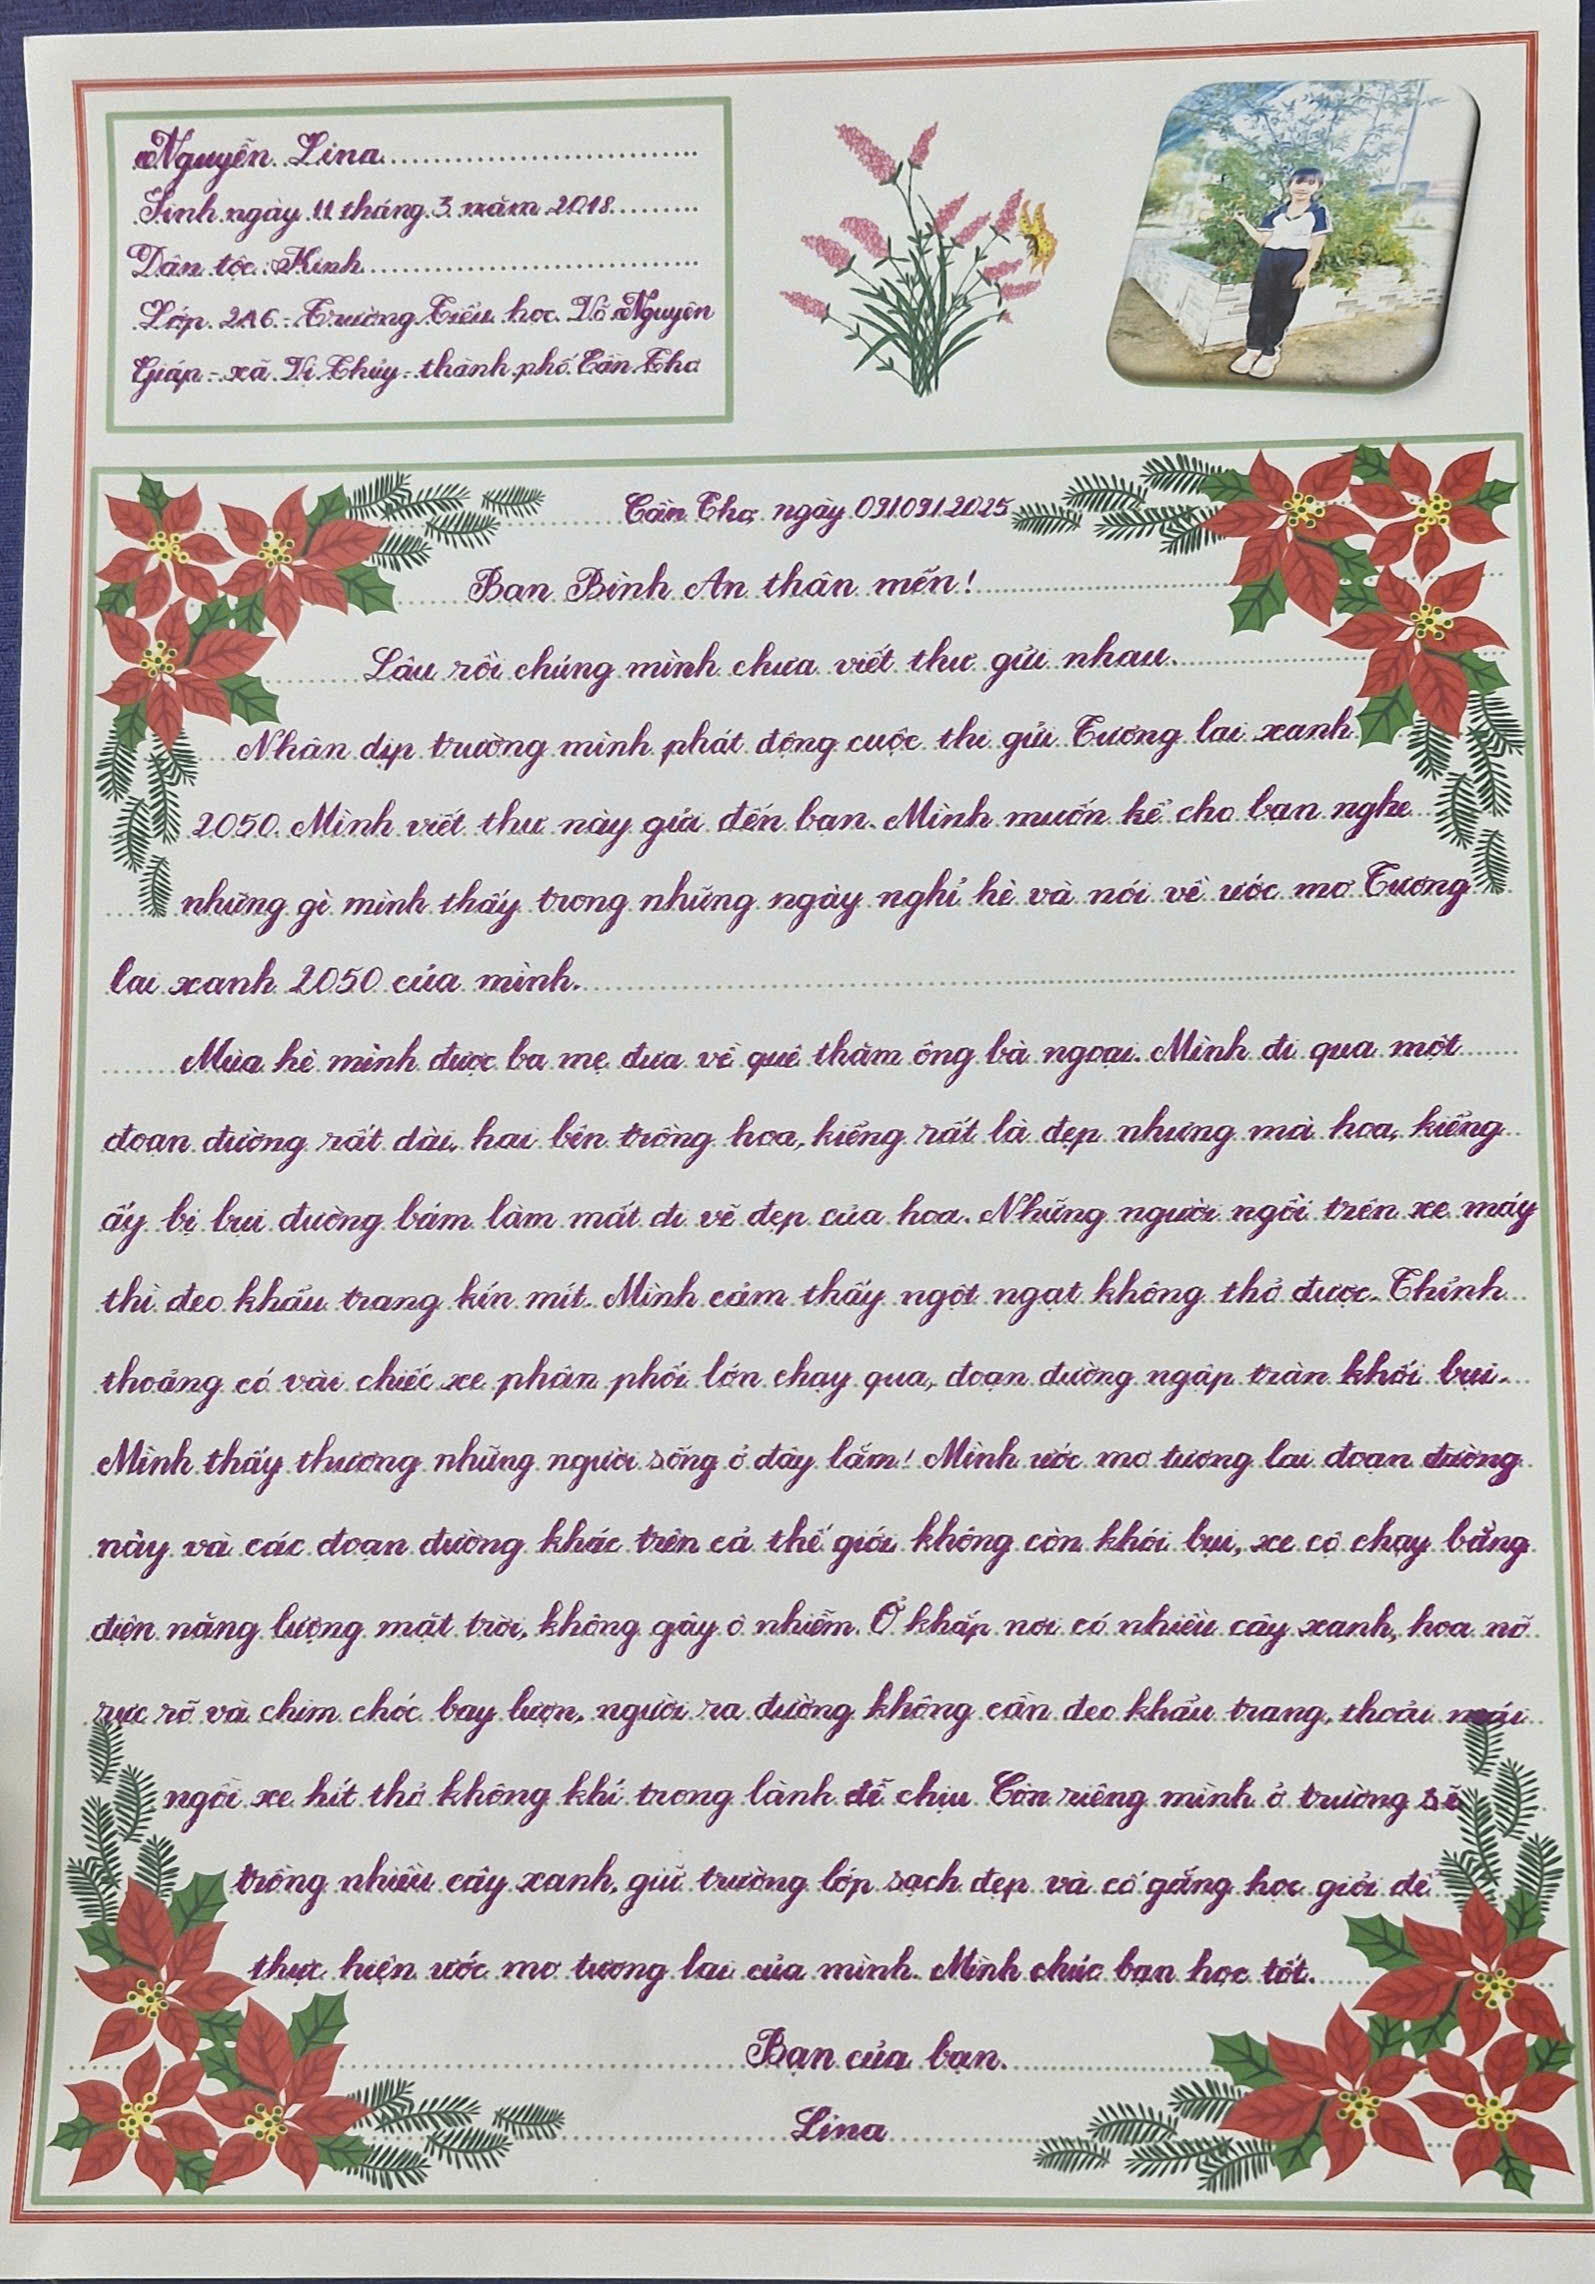 Nguyễn Lina
Sinh ngày 11 tháng 3 năm 2018
Dân tộc: Kinh
Lớp 2A6 - Trường Tiểu học Võ Nguyên
Giáp - xã Vị Thủy - thành phố Cần Thơ
Cần Thơ, ngày 09/09/2025
Bạn Bình An thân mến!
Lâu rồi chúng mình chưa viết thư gửi nhau.
Nhân dịp trường mình phát động cuộc thi gửi Tương lai xanh
2050. Mình viết thư này gửi đến bạn. Mình muốn kể cho bạn nghe
những gì mình thấy trong những ngày nghỉ hè và nói về ước mơ Tương
lai xanh 2050 của mình.
Mùa hè mình được ba mẹ đưa về quê thăm ông bà ngoại. Mình đi qua một
đoạn đường rất dài, hai bên trồng hoa, kiểng rất là đẹp nhưng mà hoa, kiểng
ấy bị bụi đường bám làm mất đi vẻ đẹp của hoa. Những người ngồi trên xe máy
thì đeo khẩu trang kín mít. Mình cảm thấy ngột ngạt không thở được. Thỉnh
thoảng có vài chiếc xe phân phối lớn chạy qua, đoạn đường ngập tràn khói bụi.
Mình thấy thương những người sống ở đây lắm! Mình ước mơ tương lai đoạn đường
này và các đoạn đường khác trên cả thế giới không còn khói bụi, xe cộ chạy bằng
điện năng lượng mặt trời, không gây ô nhiễm. Ở khắp nơi có nhiều cây xanh, hoa nở
rực rỡ và chim chóc bay lượn, người ra đường không cần đeo khẩu trang, thoải mái
ngồi xe hít thở không khí trong lành dễ chịu. Còn riêng mình ở trường sẽ
trồng nhiều cây xanh, giữ trường lớp sạch đẹp và cố gắng học giỏi để
thực hiện ước mơ tương lai của mình. Mình chúc bạn học tốt.
Bạn của bạn.
Lina